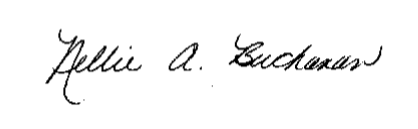 Nellie A. Buchanan